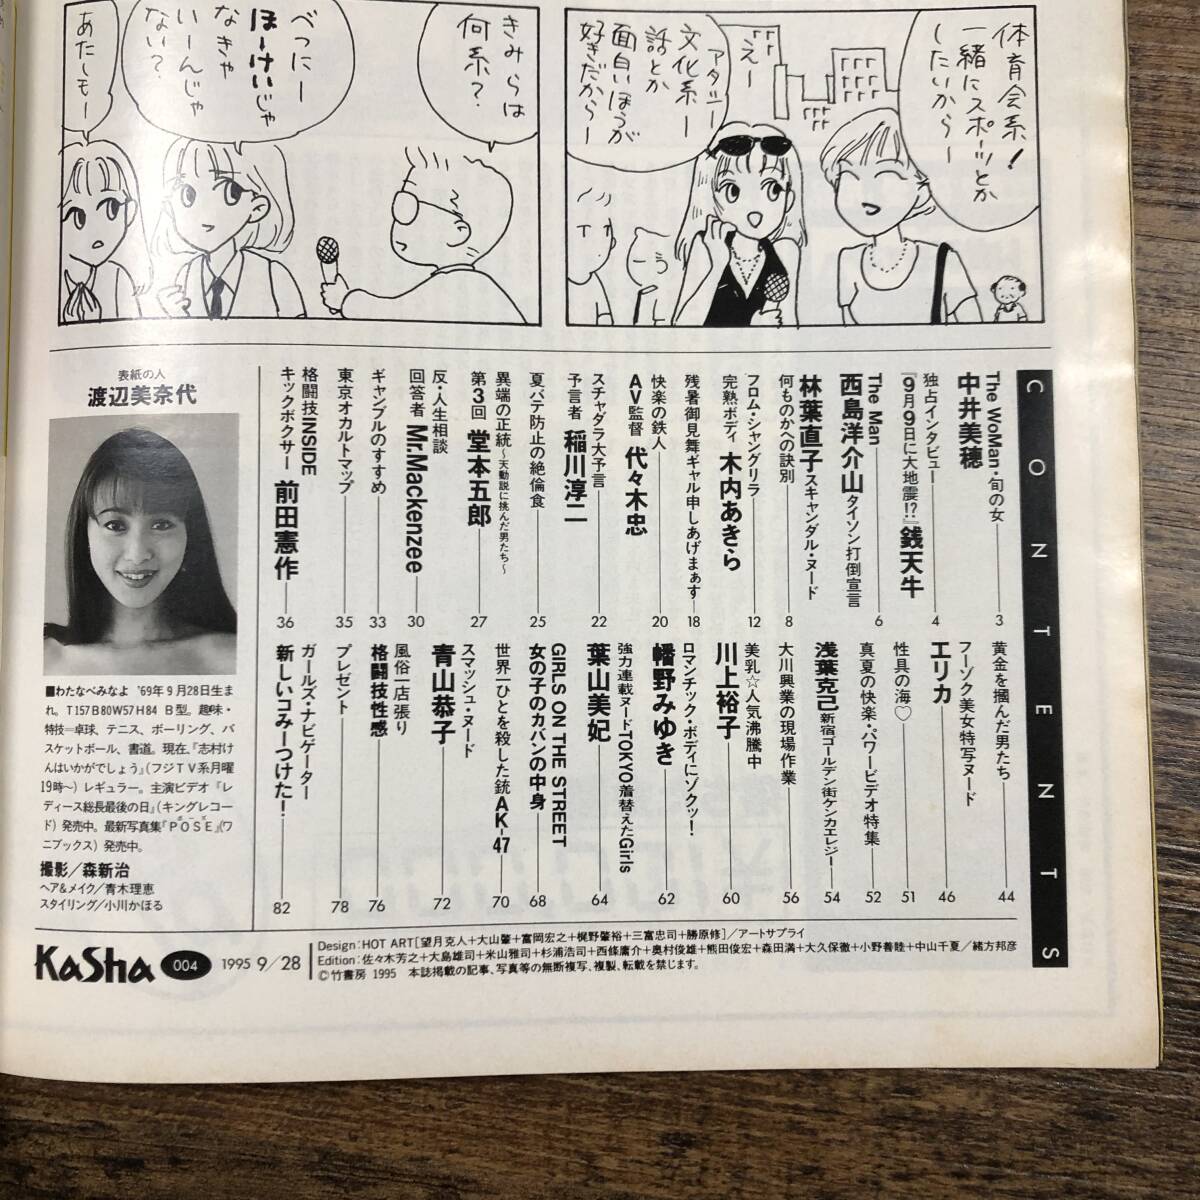 体育会系!
一緒にスポーツとか
したいからー
えー
アタシー
文化系ー
話とか
面白いほうが
好きだからー
きみらは
何系?
べつにー
ほーけいじゃ
なきゃ
いーんじゃ
ない?
あたしもー
CONTENTS
The WoMan・旬の女
中井美穂 3
独占インタビュー
『9月9日に大地震!?』銭天牛 4
The Man
西島洋介山 タイソン打倒宣言 6
林葉直子 スキャンダル・ヌード
何ものかへの訣別 8
フロム・シャングリラ
完熟ボディ 木内あきら 12
残暑御見舞ギャル申しあげまぁす 18
快楽の鉄人
AV監督 代々木忠 20
スチャダラ大予言
予言者 稲川淳二 22
夏バテ防止の絶倫食 25
異端の正統〜天動説に挑んだ男たち〜
第3回 堂本五郎 27
反・人生相談
回答者 Mr.Mackenzee 30
ギャンブルのすすめ 33
東京オカルトマップ 35
格闘技INSIDE
キックボクサー 前田憲作 36
黄金を掴んだ男たち 44
フーゾク美女特写ヌード
エリカ 46
性具の海♡ 51
真夏の快楽・パワービデオ特集 52
浅葉克己 新宿ゴールデン街ケンカエレジー 54
大川興業の現場作業 56
美乳☆人気沸騰中
川上裕子 60
ロマンチック・ボディにゾクッ!
幡野みゆき 62
強力連載ヌードTOKYO着替えたGirls
葉山美妃 64
GIRLS ON THE STREET
女の子のカバンの中身 68
世界一ひとを殺した銃AK-47 70
スマッシュ・ヌード
青山恭子 72
風俗一店張り
格闘技性感 76
プレゼント 78
ガールズ・ナビゲーター
新しいコみーつけた! 82
表紙の人
渡辺美奈代
■わたなべみなよ '69年9月28日生ま
れ。T157B80W57H84 B型。趣味・
特技=卓球、テニス、ボーリング、バ
スケットボール、書道。現在、『志村け
んはいかがでしょう』(フジTV系月曜
19時〜)レギュラー。主演ビデオ『レ
ディース総長最後の日』(キングレコー
ド)発売中。最新写真集『POSE』(ワ
ニブックス)発売中。
撮影/森新治
ヘア&メイク/青木理恵
スタイリング/小川かほる
Kasha 004 1995 9/28
Design:HOT ART[望月克人+大山肇+富岡宏之+梶野肇裕+三富忠司+勝原修]/アートサプライ
Edition:佐々木芳之+大島雄司+米山雅司+杉浦浩司+西條庸介+奥村俊雄+熊田俊宏+森田満+大久保徹+小野善睦+中山千夏/緒方邦彦
©竹書房 1995 本誌掲載の記事、写真等の無断複写、複製、転載を禁じます。